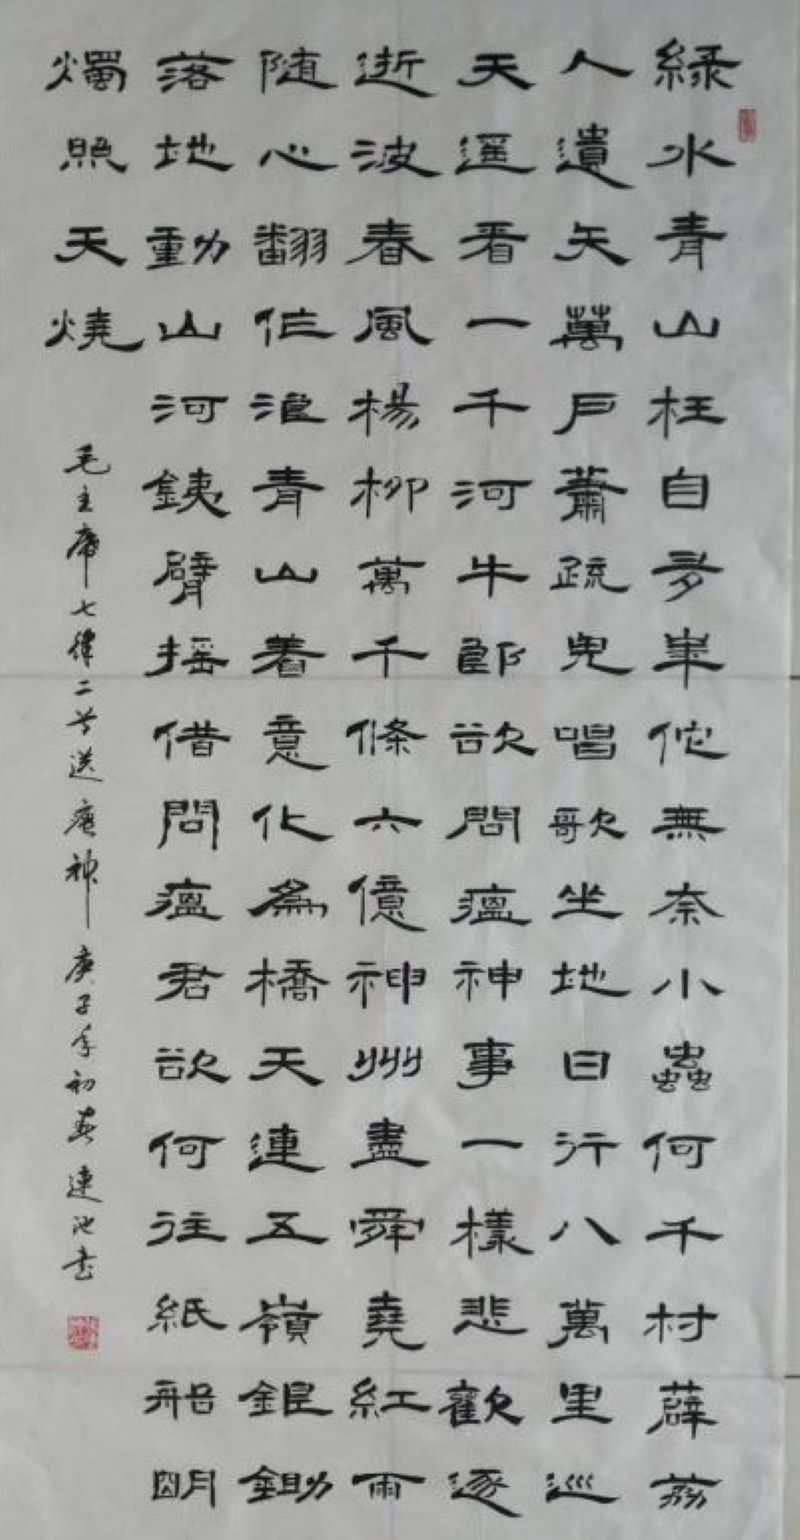 緑水青山枉自多華佗無奈小蟲何千村薜荔
人遺矢萬戶蕭疏鬼唱歌坐地日行八萬里巡
天遥看一千河牛郎欲問瘟神事一樣悲歡逐
逝波春風楊柳萬千條六億神州盡舜堯紅雨
随心翻作浪青山着意化為橋天連五嶺銀鋤
落地動山河鐵臂摇借問瘟君欲何往紙船明
燭照天燒
毛主席七律二首送瘟神庚子年初春連池書